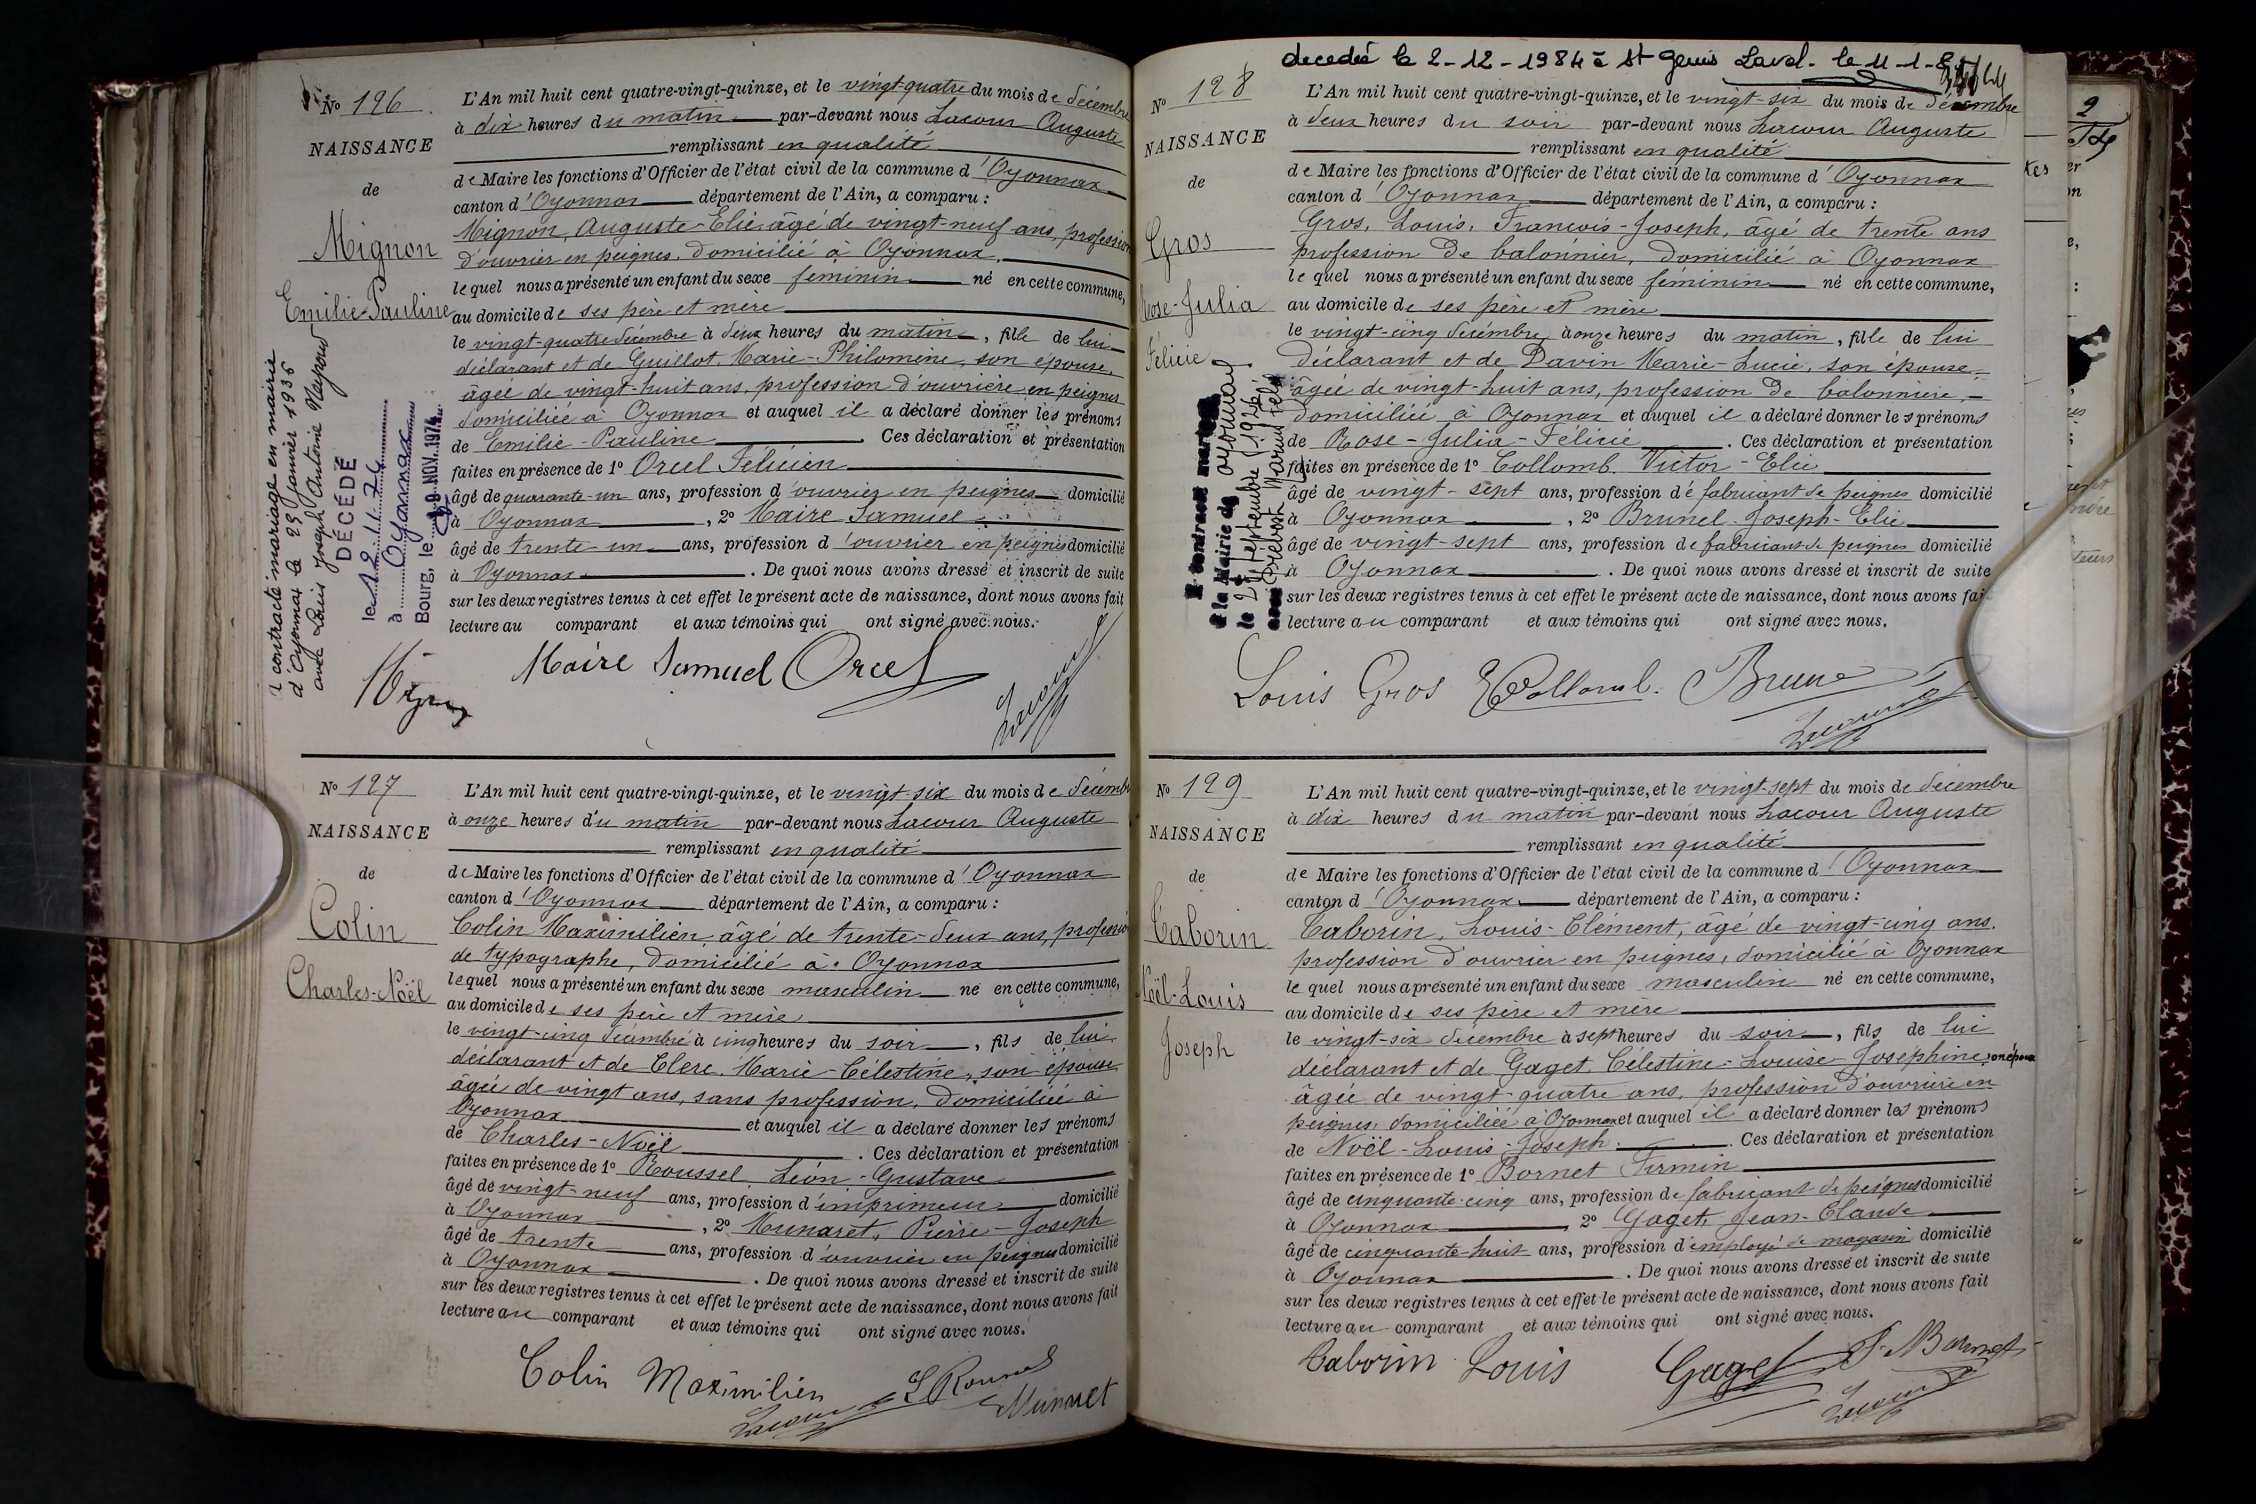 No 126
NAISSANCE
de
Mignon
Emilie-Pauline
a contracté mariage en mairie
d'Oyonnax le 25 janvier 1936
avec Louis Joseph Antoine
DÉCÉDÉ
le 12.11.74
à Oyonnax
Bourg, le 19 NOV. 1974
L'An mil huit cent quatre-vingt-quinze, et le vingt-quatre du mois de décembre
à dix heures du matin par-devant nous Lacour Auguste
remplissant en qualité
de Maire les fonctions d'Officier de l'état civil de la commune d'Oyonnax
canton d'Oyonnax département de l'Ain, a comparu :
Mignon, Auguste-Elie, âgé de vingt-neuf ans, profession
d'ouvrier en peignes, domicilié à Oyonnax,
lequel nous a présenté un enfant du sexe féminin né en cette commune,
au domicile de ses père et mère
le vingt-quatre décembre à deux heures du matin, fille de lui
déclarant et de Guillot, Marie-Philomène, son épouse,
âgée de vingt-huit ans, profession d'ouvrière en peignes
domiciliée à Oyonnax et auquel il a déclaré donner les prénoms
de Emilie-Pauline. Ces déclaration et présentation
faites en présence de 1o Orcel Félicien
âgé de quarante-un ans, profession d'ouvrier en peignes domicilié
à Oyonnax, 2o Maire Samuel
âgé de trente-un ans, profession d'ouvrier en peignes domicilié
à Oyonnax. De quoi nous avons dressé et inscrit de suite
sur les deux registres tenus à cet effet le présent acte de naissance, dont nous avons fait
lecture au comparant et aux témoins qui ont signé avec nous.
Mignon Maire Samuel Orcel Lacour
No 127
NAISSANCE
de
Colin
Charles-Noël
L'An mil huit cent quatre-vingt-quinze, et le vingt-six du mois de décembre
à onze heures du matin par-devant nous Lacour Auguste
remplissant en qualité
de Maire les fonctions d'Officier de l'état civil de la commune d'Oyonnax
canton d'Oyonnax département de l'Ain, a comparu :
Colin Maximilien, âgé de trente-deux ans, profession
de typographe, domicilié à Oyonnax
lequel nous a présenté un enfant du sexe masculin né en cette commune,
au domicile de ses père et mère
le vingt-cinq décembre à cinq heures du soir, fils de lui
déclarant et de Clerc, Marie-Célestine, son épouse
âgée de vingt ans, sans profession, domiciliée à
Oyonnax et auquel il a déclaré donner les prénoms
de Charles-Noël. Ces déclaration et présentation
faites en présence de 1o Roussel, Léon-Gustave
âgé de vingt-neuf ans, profession d'imprimeur domicilié
à Oyonnax, 2o Munaret, Pierre-Joseph
âgé de trente ans, profession d'ouvrier en peignes domicilié
à Oyonnax. De quoi nous avons dressé et inscrit de suite
sur les deux registres tenus à cet effet le présent acte de naissance, dont nous avons fait
lecture au comparant et aux témoins qui ont signé avec nous.
Colin Maximilien L Roussel
Lacour Munaret
decedée le 2-12-1984 à St Genis Laval. le 11-1-85
No 128
NAISSANCE
de
Gros
Rose-Julia
Félicie
A contracté mariage
à la Mairie de Oyonnax
le septembre 1926
avec Prevost Marius
L'An mil huit cent quatre-vingt-quinze, et le vingt-six du mois de décembre
à deux heures du soir par-devant nous Lacour Auguste
remplissant en qualité
de Maire les fonctions d'Officier de l'état civil de la commune d'Oyonnax
canton d'Oyonnax département de l'Ain, a comparu :
Gros, Louis, François-Joseph, âgé de trente ans
profession de balonnier, domicilié à Oyonnax
lequel nous a présenté un enfant du sexe féminin né en cette commune,
au domicile de ses père et mère
le vingt-cinq décembre à onze heures du matin, fille de lui
déclarant et de Davin Marie-Lucie, son épouse,
âgée de vingt-huit ans, profession de balonnière,
domiciliée à Oyonnax et auquel il a déclaré donner les prénoms
de Rose-Julia-Félicie. Ces déclaration et présentation
faites en présence de 1o Collomb, Victor-Elie
âgé de vingt-sept ans, profession de fabricant de peignes domicilié
à Oyonnax, 2o Brunel Joseph-Elie
âgé de vingt-sept ans, profession de fabricant de peignes domicilié
à Oyonnax. De quoi nous avons dressé et inscrit de suite
sur les deux registres tenus à cet effet le présent acte de naissance, dont nous avons fait
lecture au comparant et aux témoins qui ont signé avec nous.
Louis Gros Collomb. Brunel
Lacour
No 129
NAISSANCE
de
Taborin
Noël-Louis
Joseph
L'An mil huit cent quatre-vingt-quinze, et le vingt-sept du mois de décembre
à dix heures du matin par-devant nous Lacour Auguste
remplissant en qualité
de Maire les fonctions d'Officier de l'état civil de la commune d'Oyonnax
canton d'Oyonnax département de l'Ain, a comparu :
Taborin, Louis-Clément, âgé de vingt-cinq ans.
profession d'ouvrier en peignes, domicilié à Oyonnax
lequel nous a présenté un enfant du sexe masculin né en cette commune,
au domicile de ses père et mère
le vingt-six décembre à sept heures du soir, fils de lui
déclarant et de Gaget, Célestine-Louise-Joséphine, son épouse
âgée de vingt-quatre ans, profession d'ouvrière en
peignes, domiciliée à Oyonnax et auquel il a déclaré donner les prénoms
de Noël-Louis-Joseph. Ces déclaration et présentation
faites en présence de 1o Bornet Firmin
âgé de cinquante-cinq ans, profession de fabricant de peignes domicilié
à Oyonnax, 2o Gaget, Jean-Claude
âgé de cinquante-huit ans, profession d'employé de magasin domicilié
à Oyonnax. De quoi nous avons dressé et inscrit de suite
sur les deux registres tenus à cet effet le présent acte de naissance, dont nous avons fait
lecture au comparant et aux témoins qui ont signé avec nous.
Taborin Louis Gaget F. Bornet
Lacour